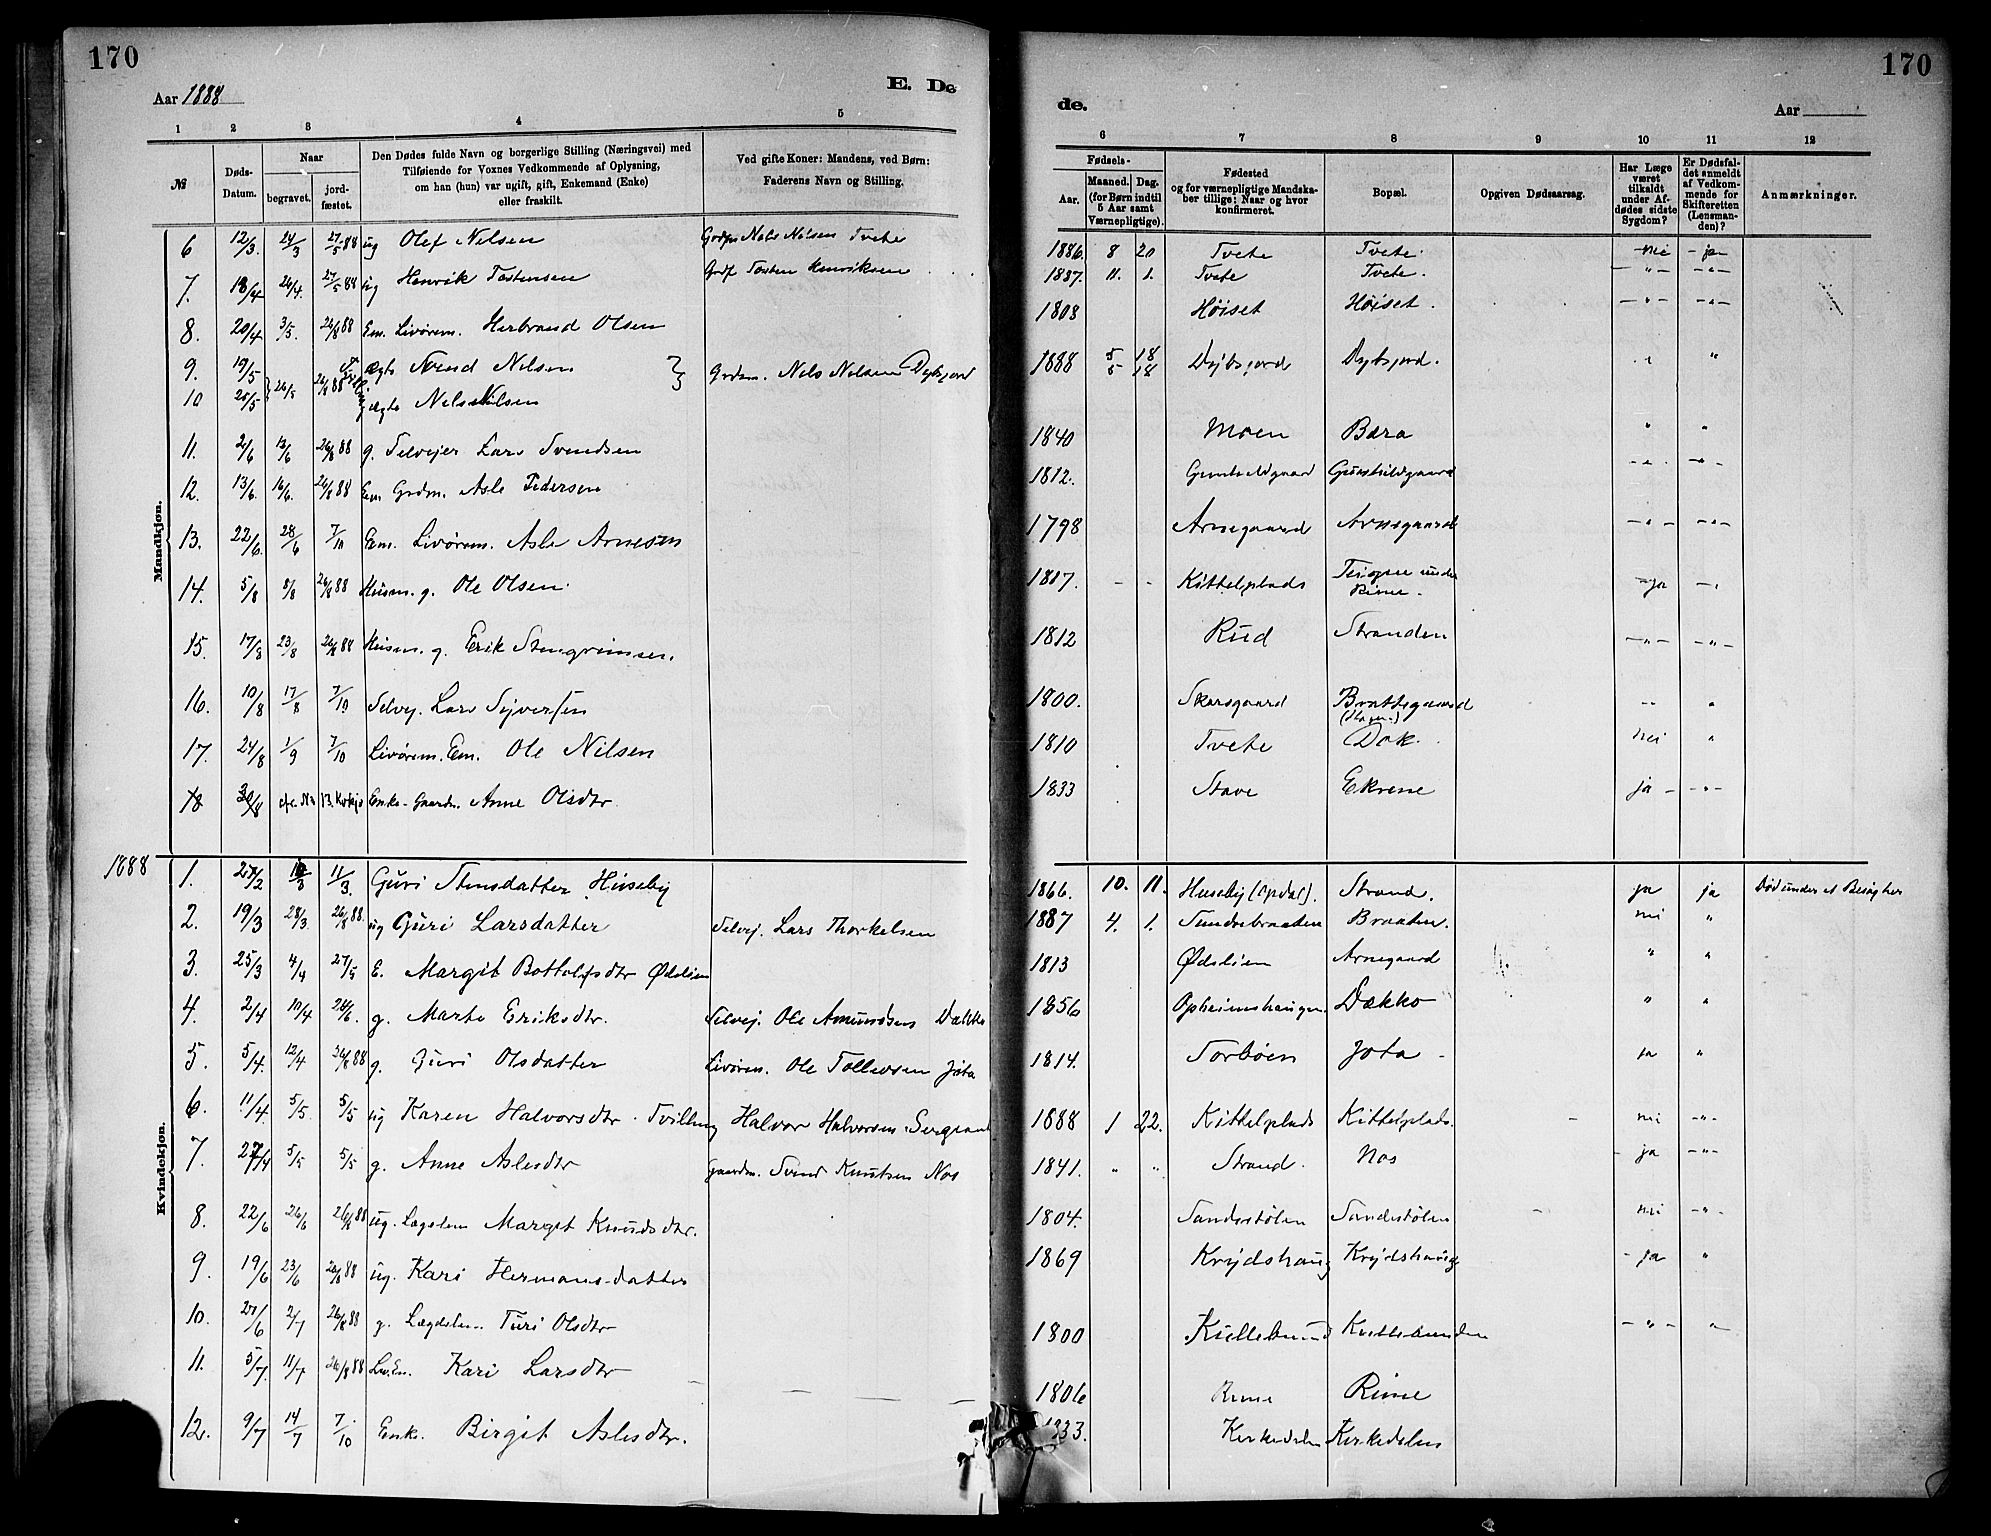 170
170
Aar 1888
E. De
de.
Aar
1 2 3 4 5
6 7 8 9 10 11 12
№
Døds-
Datum.
Naar
begravet.
jord-
fæstet.
Den Dødes fulde Navn og borgerlige Stilling (Næringsvei) med
Tilføiende for Voxnes Vedkommende af Oplysning,
om han (hun) var ugift, gift, Enkemand (Enke)
eller fraskilt.
Ved gifte Koner: Mandens, ved Børn:
Faderens Navn og Stilling.
Fødsels-
Aar.
Maaned.
Dag.
(for Børn indtil
5 Aar samt
Værnepligtige).
Fødested
og for værnepligtige Mandska-
ber tillige: Naar og hvor
konfirmeret.
Bopæl.
Opgiven Dødsaarsag.
Har Læge
været
tilkaldt
under Af-
dødes sidste
Sygdom?
Er Dødsfal-
det anmeldt
af Vedkom-
mende for
Skifteretten
(Lensman-
den)?
Anmærkninger.
Mandkjøn.
6 12/3. 24/3 27/5 88 ug Olef Nilsen Nels Nilsen Tvete 1886. 8 20 Tvete Tvete. nei - ja
7. 18/4 26/4. 27/5 88 ug Henrik Tostensen Tosten Henriksen 1887. 11. 1. Tvete Tvete. - " - - " -
8. 20/4 3/5. 26/8 88 Em. Livørem. Herbrand Olsen 1808 Høiset Høiset. - " - - " -
9. 19/5 26/5 26/8 88 ægte Svend Nilsen Grdm. Nels Nilsen Dybsjord 1888 5 18 Dybsjord Dybsjord. " "
10 25/5 ægte Nels Nilsen 5 18
11. 2/6 13/6 26/8 88 g. Selvejer Lars Svendsen 1840 Moen Bæra " "
12. 13/6. 16/6. 26/8 88 Em Grdm. Asle Pedersen 1812. Gunhildgaard Gunhildgaard - " - - " -
13. 22/6. 28/6 7/10 Em. Livørem. Asle Arnesen 1798 Arnegaard Arnegaard - " - - " -
14. 5/8 8/8 26/8 88 Husm. g. Ole Olsen. 1817. - - Kittelplads under Rime. - ja - "
15. 17/8 23/8 26/8 88 Husm. g. Erik Stengrimsen. 1812 Rud Stranden - " - - " -
16. 10/8 17/8 7/10 Selvej. Lars Syversen 1800. Skarsgaard Brattegaard - " "
17. 24/8 1/9 7/10 Livørem. Em. Ole Nilsen 1810 Tvete Dok. nei "
18 30/8 Enke - Gaardm. Anne Olsdtr 1833 Stave Ekrene ja - - " -
1888
Kvindekjøn.
1. 27/2 10/3 11/3. Guri Stensdatter Huseby 1866. 10. 11. Huseby (Opdal). Strand. ja ja Død under et Besøg her
2. 19/3 28/3. 26/8 88. ug Guri Larsdatter Selvej. Lars Thorkelsen 1887 4. 1. Sundrebraaten Braaten. nei "
3. 25/3 4/4 27/5 E. Margit Bottolfsdtr Ødelien 1813 Ødelien Arnegaard " "
4. 2/4 10/4 24/6. g. Marte Eriksdtr. Selvej. Ole Amundsen Dækko 1856 Opheimshaugen. Dækko " "
5. 5/4. 12/4 26/8 88 g. Guri Olsdatter Livørem. Ole Tollevsen Jota 1814. Torbøen Jota - ja "
6. 11/4. 5/5. 5/5 ug Karen Halvorsdtr. Tvilling Halvor Halvorsen Sergeant 1888 1 22. Kittelplads Kittelplads. nei - " -
7. 27/4 5/5 5/5 g. Anne Aslesdtr Gaardm. Svend Knutsen Nos 1841. " " Strand. Nos - ja - " -
8. 22/6 26/6 26/8 88 ug. Lægdslem Margit Knudsdtr. 1804. Sandestølen Sandestølen nei - " -
9. 19/6 23/6 26/8 88 ug. Kari Hermansdatter 1869 Krydshaug Krydshaug - ja "
10. 20/6 2/7 26/8 88 g. Lægdslem Turi Olsdtr 1800 - " - "
11. 5/7. 11/7 26/8 88 Kari Larsdtr 1806 Rime Rime
12. 9/7 14/7 7/10 Enke. Birgit Aslesdtr. 1833. Kirkedelen Kirkedelen